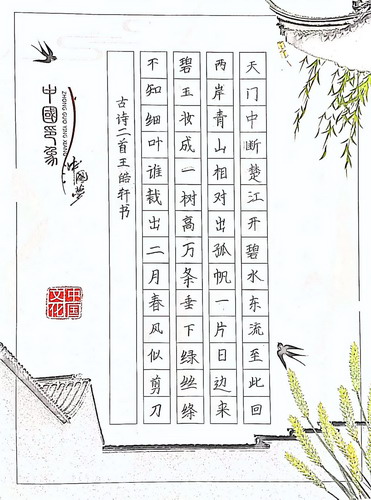 天门中断楚江开碧水东流至此回
两岸青山相对出孤帆一片日边来
碧玉妆成一树高万条垂下绿丝绦
不知细叶谁裁出二月春风似剪刀
古诗二首王皓轩书
中國印象
ZHONG GUO YING XIANG
中国梦
中国
文化